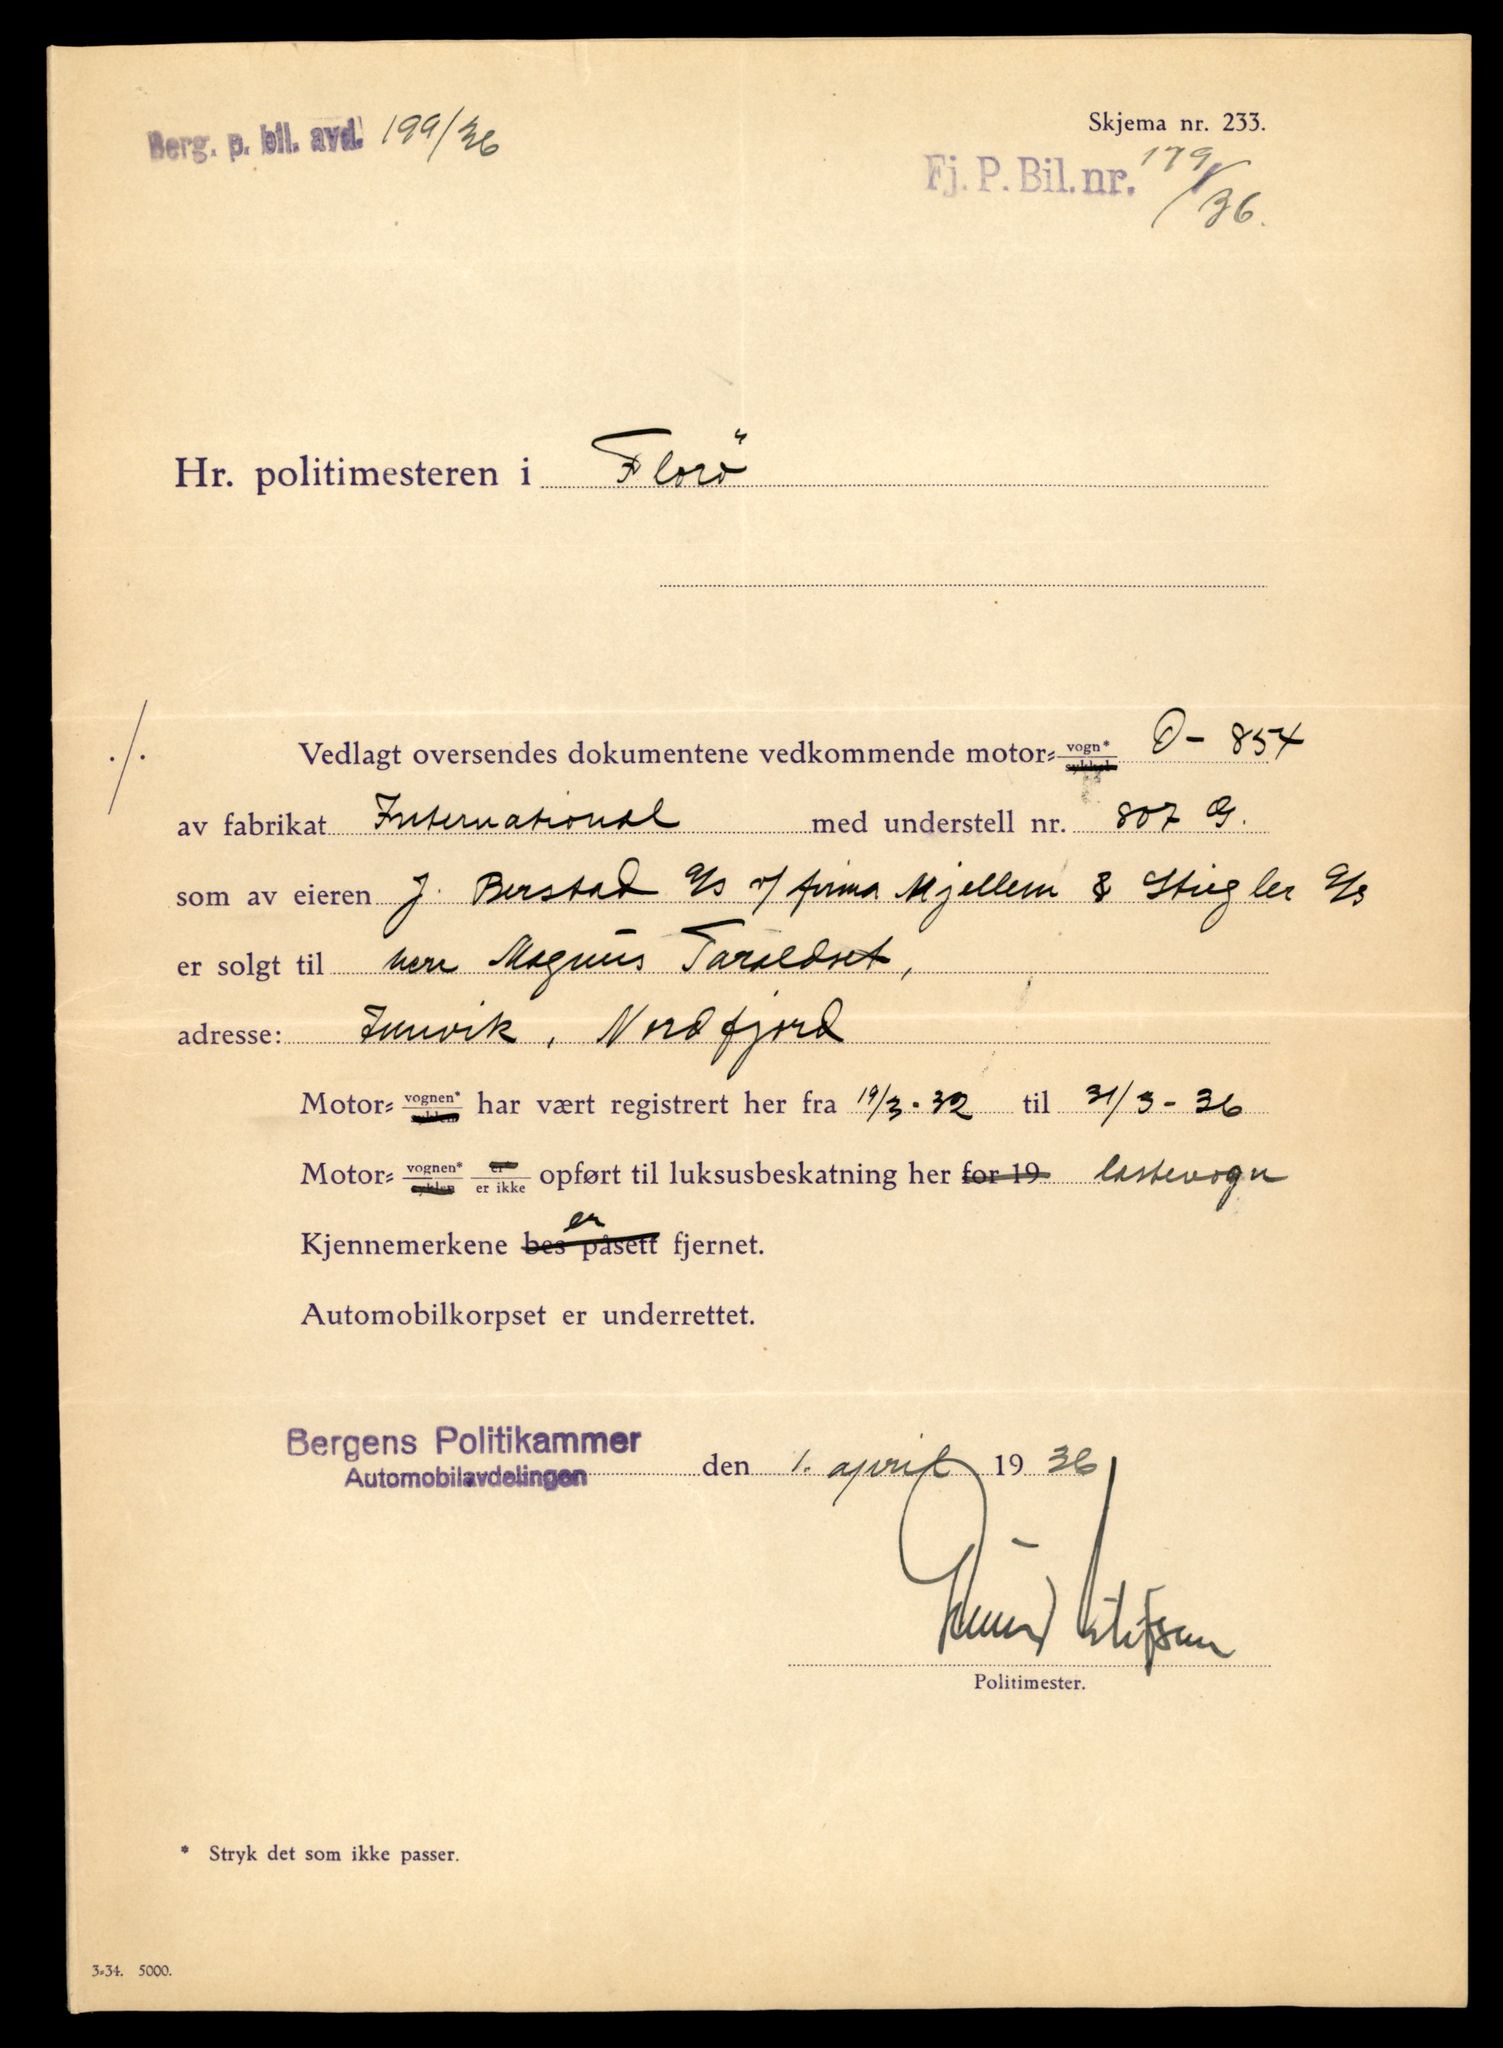 Berg. p. bil. avd. 199/36
Skjema nr. 233.
Fj. P. Bil. nr. 179/36.
Hr. politimesteren i Florö
./.
Vedlagt oversendes dokumentene vedkommende motor= vogn* sykkel O - 854
av fabrikat International med understell nr. 807 G.
som av eieren J. Berstad A/S v/ firma Mjellem & Stiegler A/S
er solgt til herr Magnus Taraldset,
adresse: Innvik, Nordfjord
Motor= vognen* syklen har vært registrert her fra 19/3-32 til 31/3-36
Motor= vognen* syklen er er ikke opført til luksusbeskatning her for 19 lastevogn
er
Kjennemerkene bes påsett fjernet.
Automobilkorpset er underrettet.
Bergens Politikammer
Automobilavdelingen den 1. april 1936
Politimester.
* Stryk det som ikke passer.
3=34. 5000.